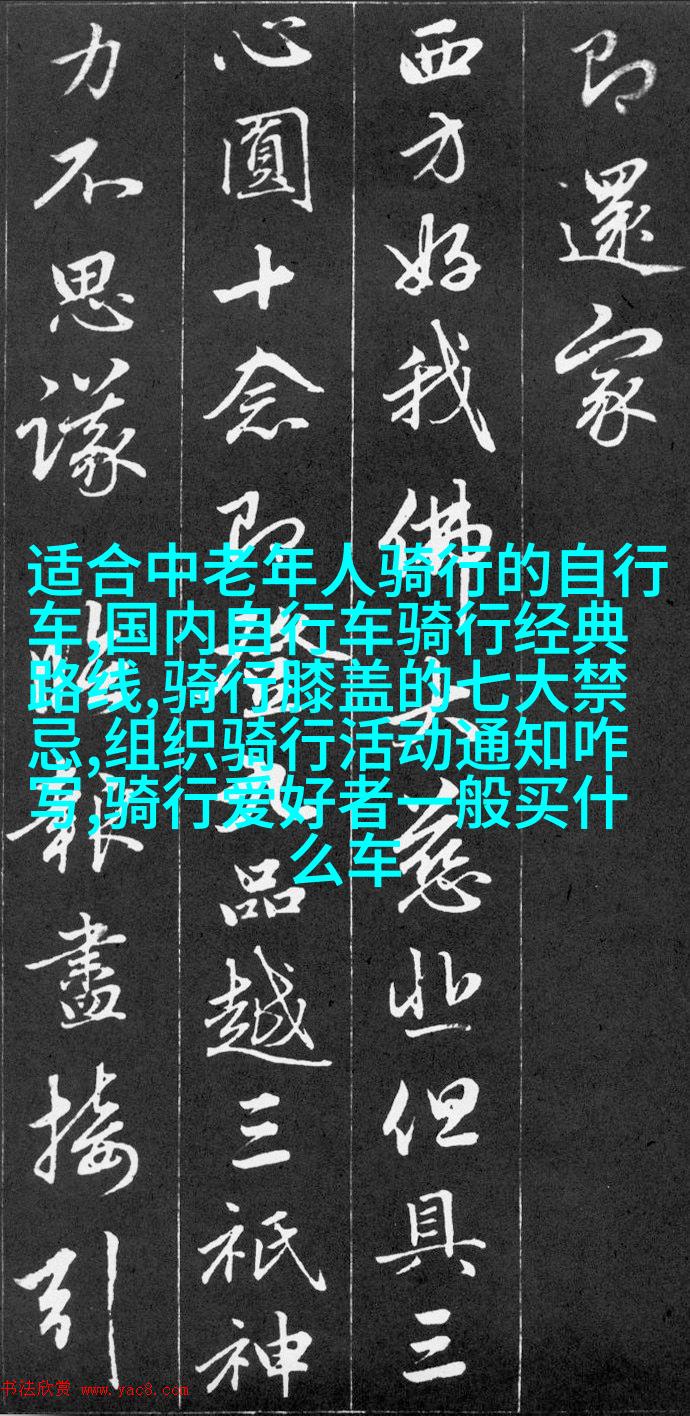 即還家
西方好我佛大慈悲但具三
心圓十念即登九品越三祇神
力不思議臨報盡接引
适合中老年人骑行的自行
车,国内自行车骑行经典
路线,骑行膝盖的七大禁
忌,组织骑行活动通知咋
写,骑行爱好者一般买什
么车
书法欣赏 www.yac8.com